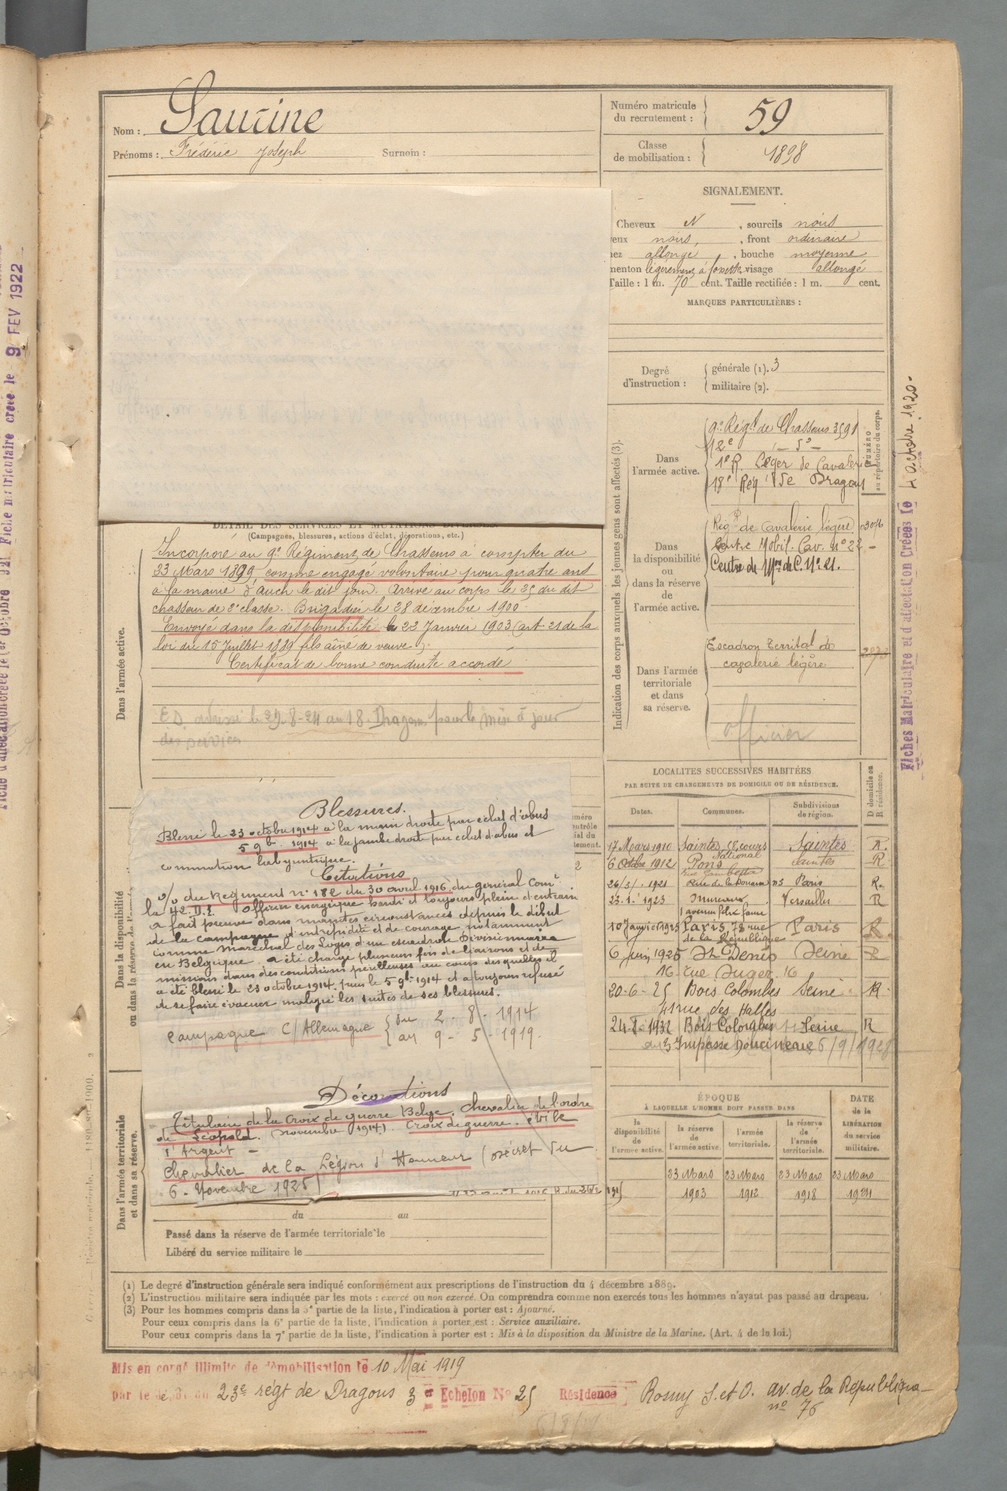 Nom : Saurine
Prénoms : Frédéric Joseph Surnom :
Numéro matricule du recrutement : 59
Classe de mobilisation : 1898
SIGNALEMENT.
Cheveux N , sourcils noirs
yeux noirs, , front ordinaire
nez allongé , bouche moyenne
menton légèrement à fossette visage allongé
Taille : 1 m. 70 cent. Taille rectifiée : 1 m. cent.
MARQUES PARTICULIÈRES :
Degré d'instruction : générale (1). 3
militaire (2).
Indication des corps auxquels les jeunes gens sont affectés (3).
NUMÉRO au répertoire du corps.
Dans l'armée active.
9e Régt de Chasseurs 3591
12e – 5e –
1er R. Léger de Cavalerie
18e Rég de Dragons
Dans la disponibilité ou dans la réserve de l'armée active.
Régt de Cavalerie légère
Centre Mobil. Cav. n° 22 –
Centre de C. N° 21.
Dans l'armée territoriale et dans sa réserve.
Escadron Territal de
cavalerie légère
officier
Fiches Matriculaire et d'affectation Créées le 4 octobre 1920.
Fiche matriculaire créée le 9 FEV 1922
DÉTAIL DES SERVICES ET MUTATIONS DIVERSES.
(Campagnes, blessures, actions d'éclat, décorations, etc.)
Dans l'armée active.
Incorporé au 9e Régiment de Chasseurs à compter du
23 Mars 1899 comme engagé volontaire pour quatre ans
à la mairie d'Auch le dit jour. Arrivé au corps le 25 du dit
chasseur de 2e classe. Brigadier le 28 décembre 1900.
Envoyé dans la disponibilité le 22 Janvier 1903 (art. 21 de la
loi du 15 Juillet 1889 fils aîné de veuve).
Certificat de bonne conduite accordé
E.D. adressé le 29-8-24 au 18. Dragons pour la mise à jour
des services
Dans la disponibilité
ou dans la réserve de l'armée active.
Blessures.
Blessé le 23 octobre 1914 à la main droite par éclat d'obus
5 9bre 1914 à la jambe droite par éclat d'obus et
commotion labyrintique.
Citations
O/ du Régiment n° 182 du 30 avril 1916, du général Comt
la 42e D.I. Officier énergique hardi et toujours plein d'entrain
a fait preuve dans maintes circonstances depuis le début
de la campagne d'intrépidité et de courage notamment
comme maréchal des logis d'un escadron divisionnaire
en Belgique. a été chargé plusieurs fois de liaisons et de
missions dans des conditions périlleuses au cours desquelles il
a été blessé le 23 octobre 1914, puis le 5 9bre 1914 et a toujours refusé
de se faire évacuer malgré les suites de ses blessures.
Campagne C/ Allemagne { du 2 - 8 - 1914
au 9 - 5 - 1919.
Décorations
Titulaire de la Croix de guerre Belge. Chevalier de l'ordre
de Léopold. (novembre 1914). Croix de guerre. étoile
d'Argent –
Chevalier de la Légion d'Honneur (décret du
6 - Novembre 1925)
LOCALITÉS SUCCESSIVES HABITÉES
PAR SUITE DE CHANGEMENTS DE DOMICILE OU DE RÉSIDENCE.
Dates. Communes. Subdivisions de région. D domicile ou R résidence.
17 Mars 1910 Saintes Saintes R.
6 Octbre 1912 Pons Saintes R
26/3/ 1921 Paris R.
23.1.1923 Versailles R
1 avenue félix faure
10 Janvier 1925 Paris, 78 rue Paris R.
de la République
6 Juin 1925 St Denis Seine R
16 rue Suger. 16
20-6-25 Bois Colombes Seine R
rue des Halles
1932 Bois Colombes Seine R
3 Impasse Doucineau 6/9/1928
ÉPOQUE
À LAQUELLE L'HOMME DOIT PASSER DANS
DATE de la LIBÉRATION du service militaire.
la disponibilité de l'armée active. la réserve de l'armée active. l'armée territoriale. la réserve de l'armée territoriale.
23 Mars 1903 23 Mars 1912 23 Mars 1918 23 Mars 1924
Dans l'armée territoriale
et dans sa réserve.
du au
Passé dans la réserve de l'armée territoriale le
Libéré du service militaire le
(1) Le degré d'instruction générale sera indiqué conformément aux prescriptions de l'instruction du 4 décembre 1889.
(2) L'instruction militaire sera indiquée par les mots : exercé ou non exercé. On comprendra comme non exercés tous les hommes n'ayant pas passé au drapeau.
(3) Pour les hommes compris dans la 5e partie de la liste, l'indication à porter est : Ajourné.
Pour ceux compris dans la 6e partie de la liste, l'indication à porter est : Service auxiliaire.
Pour ceux compris dans la 7e partie de la liste, l'indication à porter est : Mis à la disposition du Ministre de la Marine. (Art. 4 de la loi.)
Mis en congé illimité de démobilisation le 10 Mai 1919
par le 23e régt de Dragons 3e Echelon N° 25 Résidence Rosny S. et O. av. de la République
n° 76